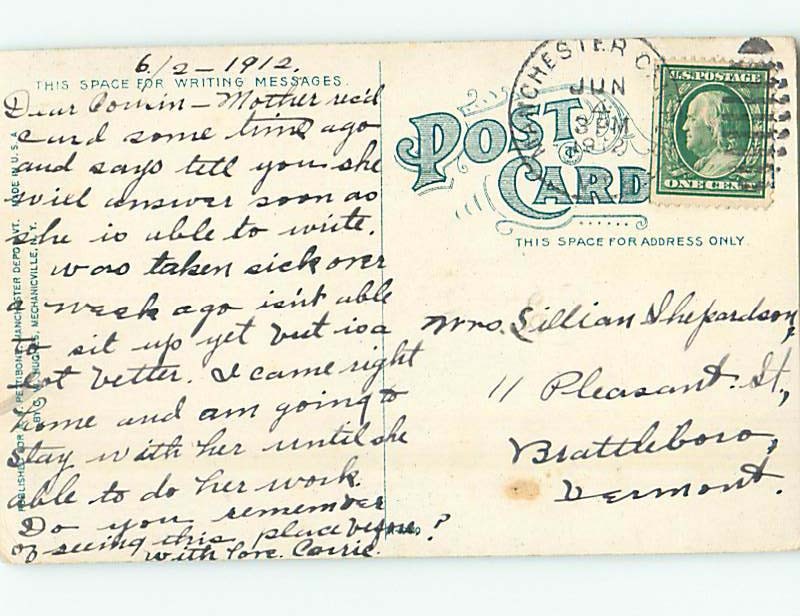 6/2-1912.
THIS SPACE FOR WRITING MESSAGES.
Dear Cousin - Mother rec'd
card some time ago
and says tell you she
will answer soon as
she is able to write.
was taken sick over
a week ago isn't able
to sit up yet but is a
lot better. I came right
home and am going to
stay with her until she
able to do her work.
Do you remember
of seeing this place before?
with love. Carrie.
MANCHESTER DEPOT, VT. MADE IN U.S.A.
HUGHES, MECHANICVILLE, N.Y.
MANCHESTER
JUN
4
3 PM
1912
U.S. POSTAGE
ONE CENT
POST CARD
THIS SPACE FOR ADDRESS ONLY.
Mrs. Lillian Shepardson,
11 Pleasant. St,
Brattleboro,
Vermont.